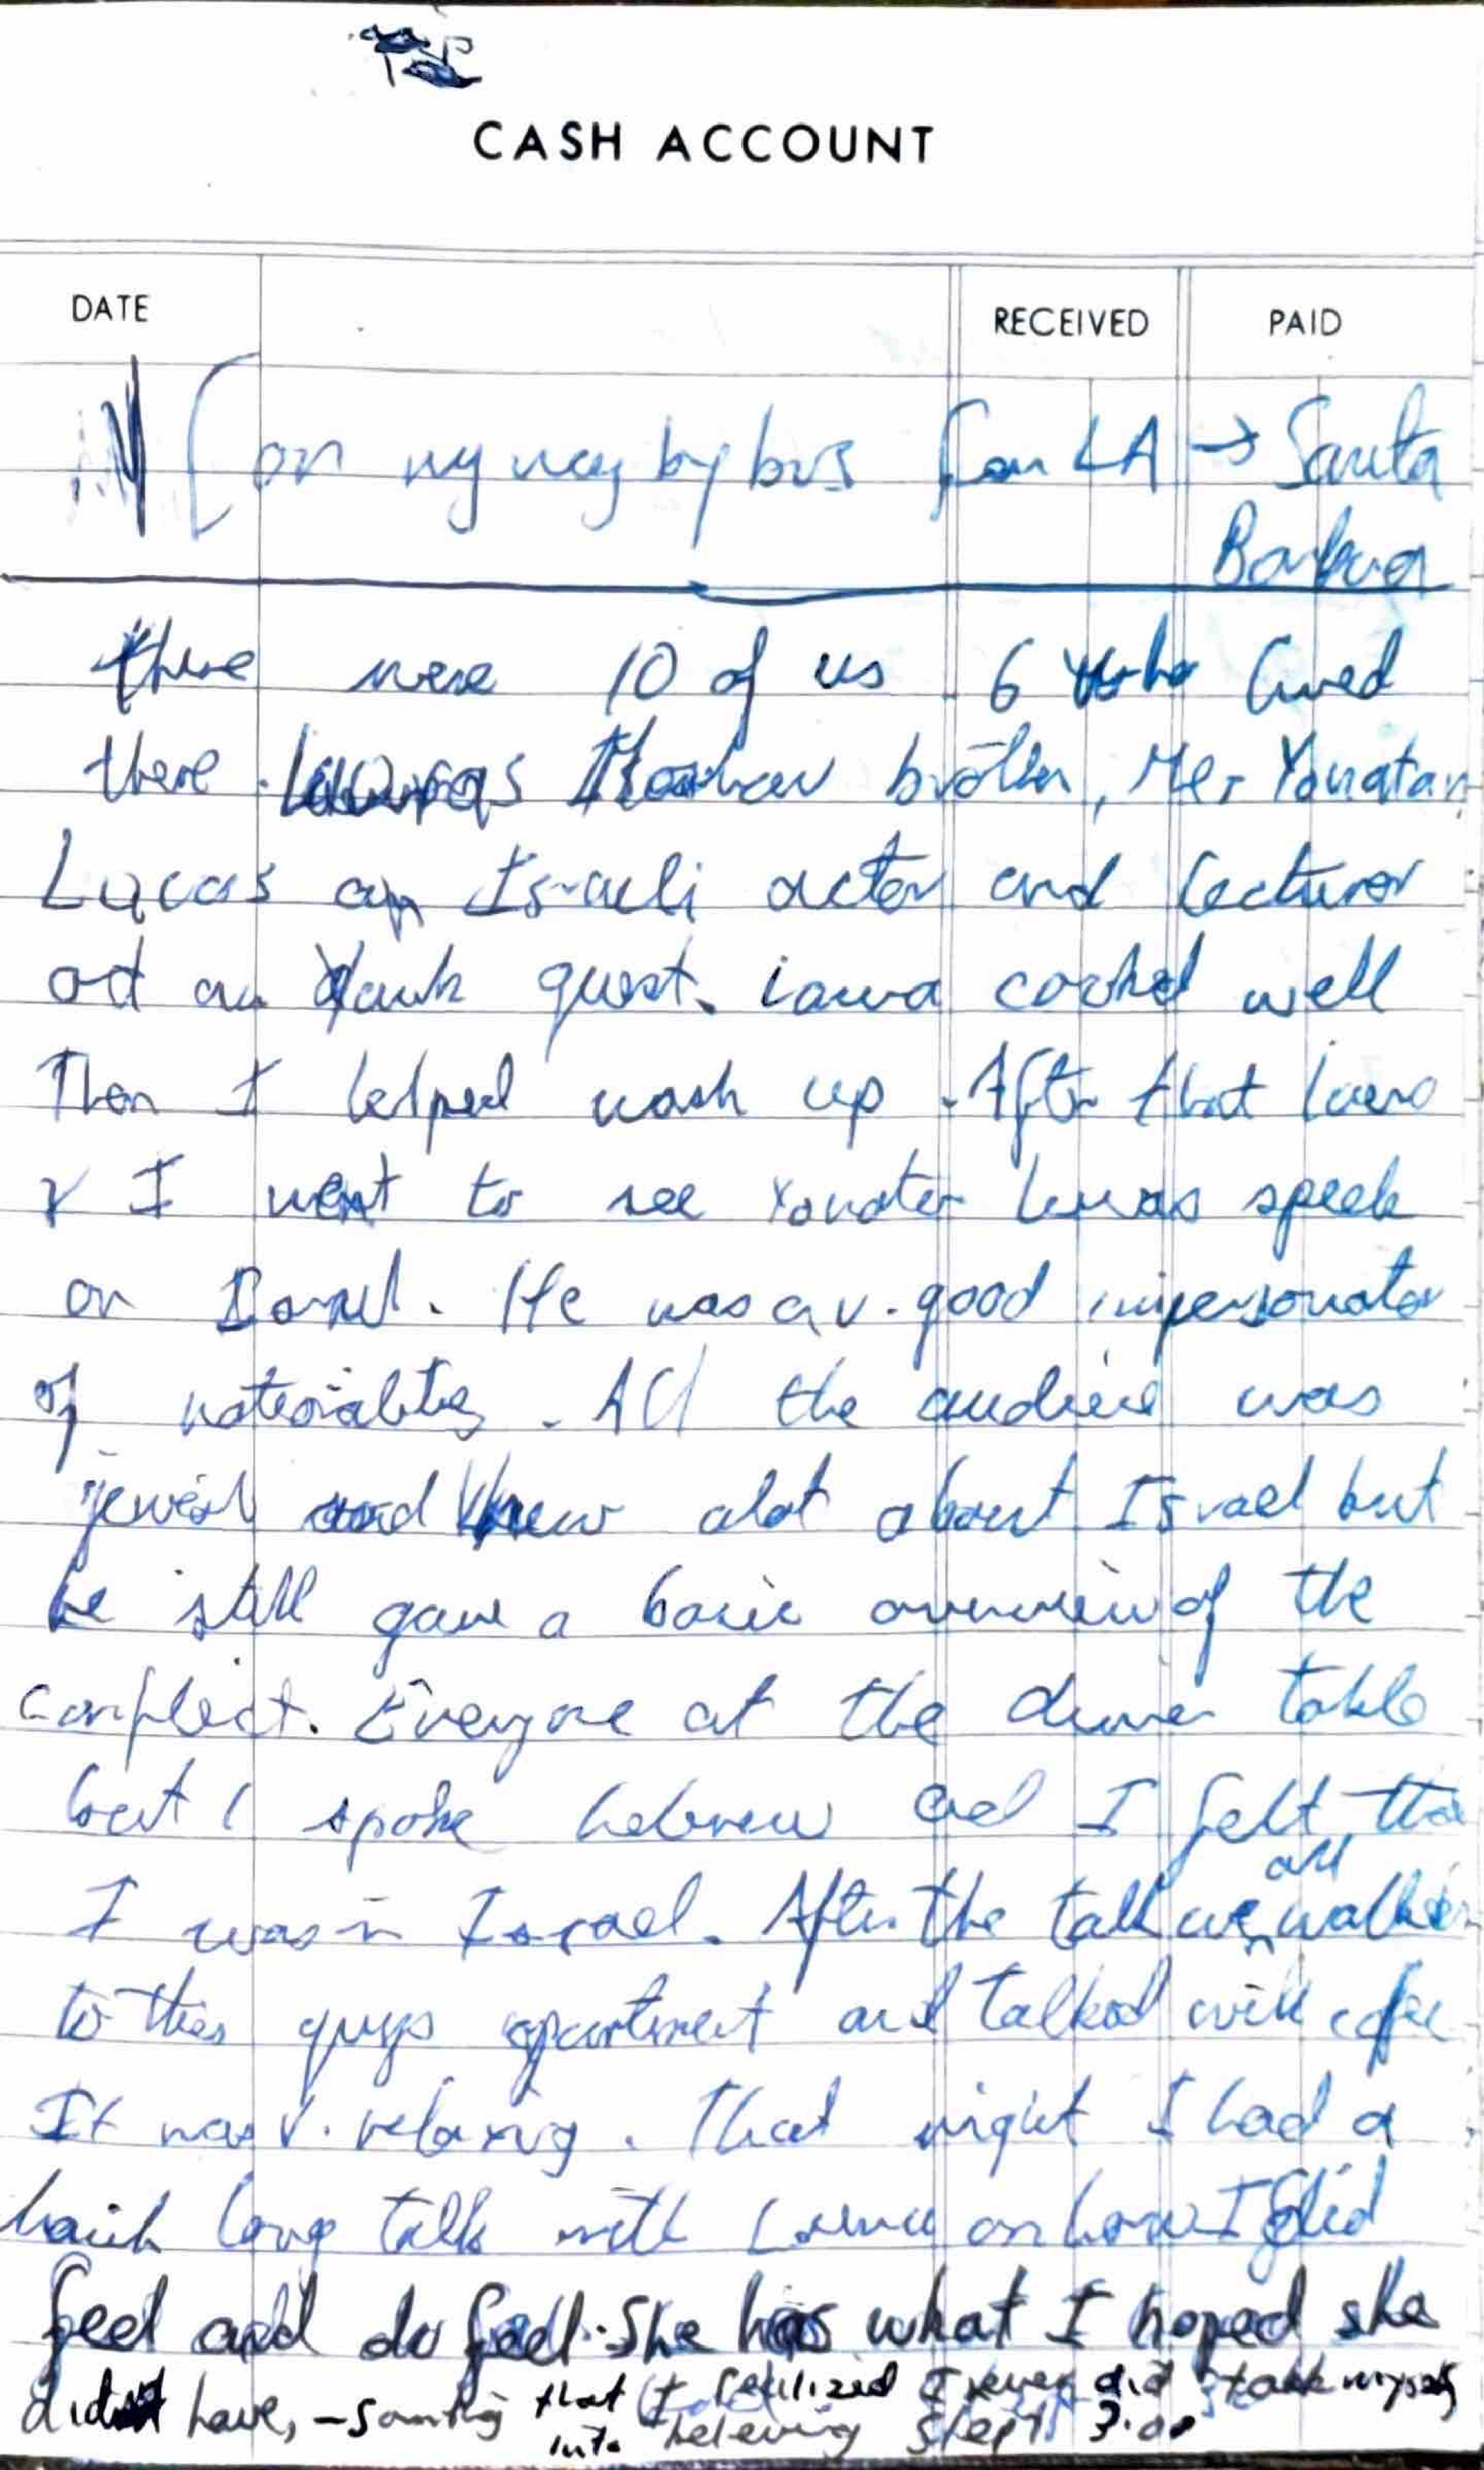 CASH ACCOUNT
DATE RECEIVED PAID
[on my way by bus from LA → Santa
Barbara
there were 10 of us 6 who lived
there. brother, Yonatan
Lucas an Israeli actor and lecturer
and an guest. cooked well
Then I helped wash up. After that
& I went to see Yonatan Lucas speak
on Israel. He was a v. good impersonator
of nationalities. All the audience was
jewish and knew alot about Israel but
he still gave a basic overview of the
conflict. Everyone at the dinner table
but I spoke hebrew and I felt tha
I was in Israel. After the talk we all walked
to this guys apartment and talked with coffee
It was v. relaxing. That night I had a
long talk with on how I did
feel and do feel. She has what I hoped she
didn't have, - somthing that I realized I never did talk myself
into beleving slept 3:00